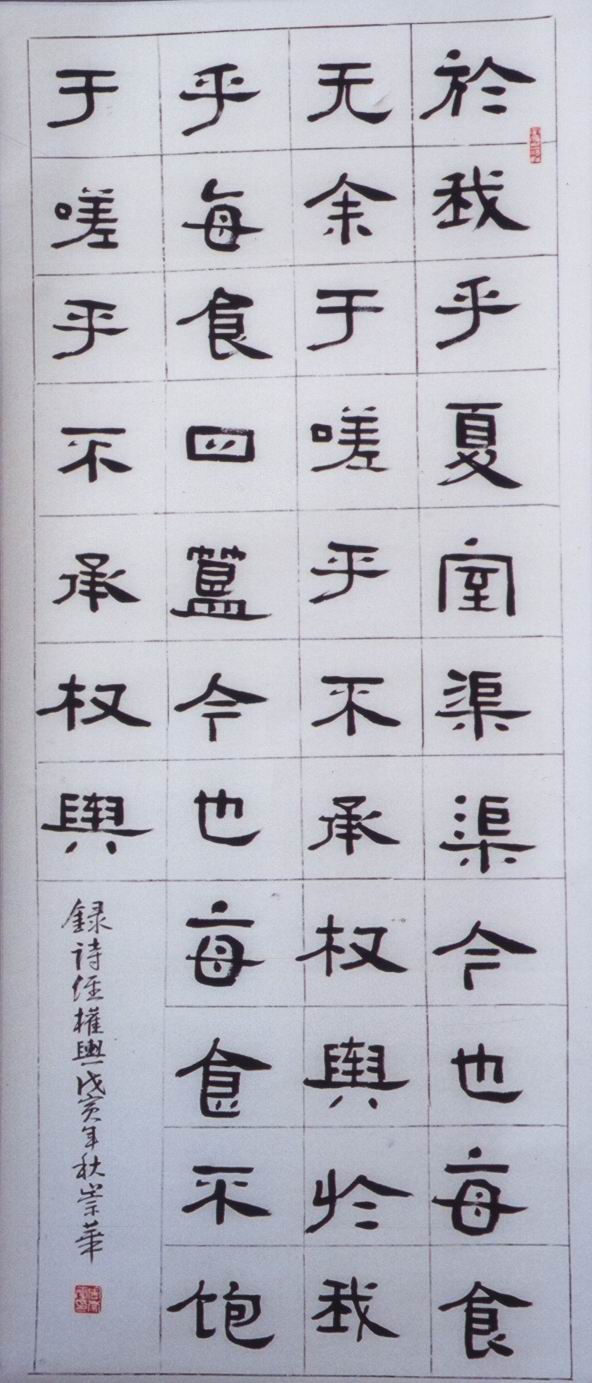 於我乎夏室渠渠今也每食
无余于嗟乎不承权舆於我
乎每食四簋今也每食不饱
于嗟乎不承权舆
録诗经權輿戊寅年秋崇華